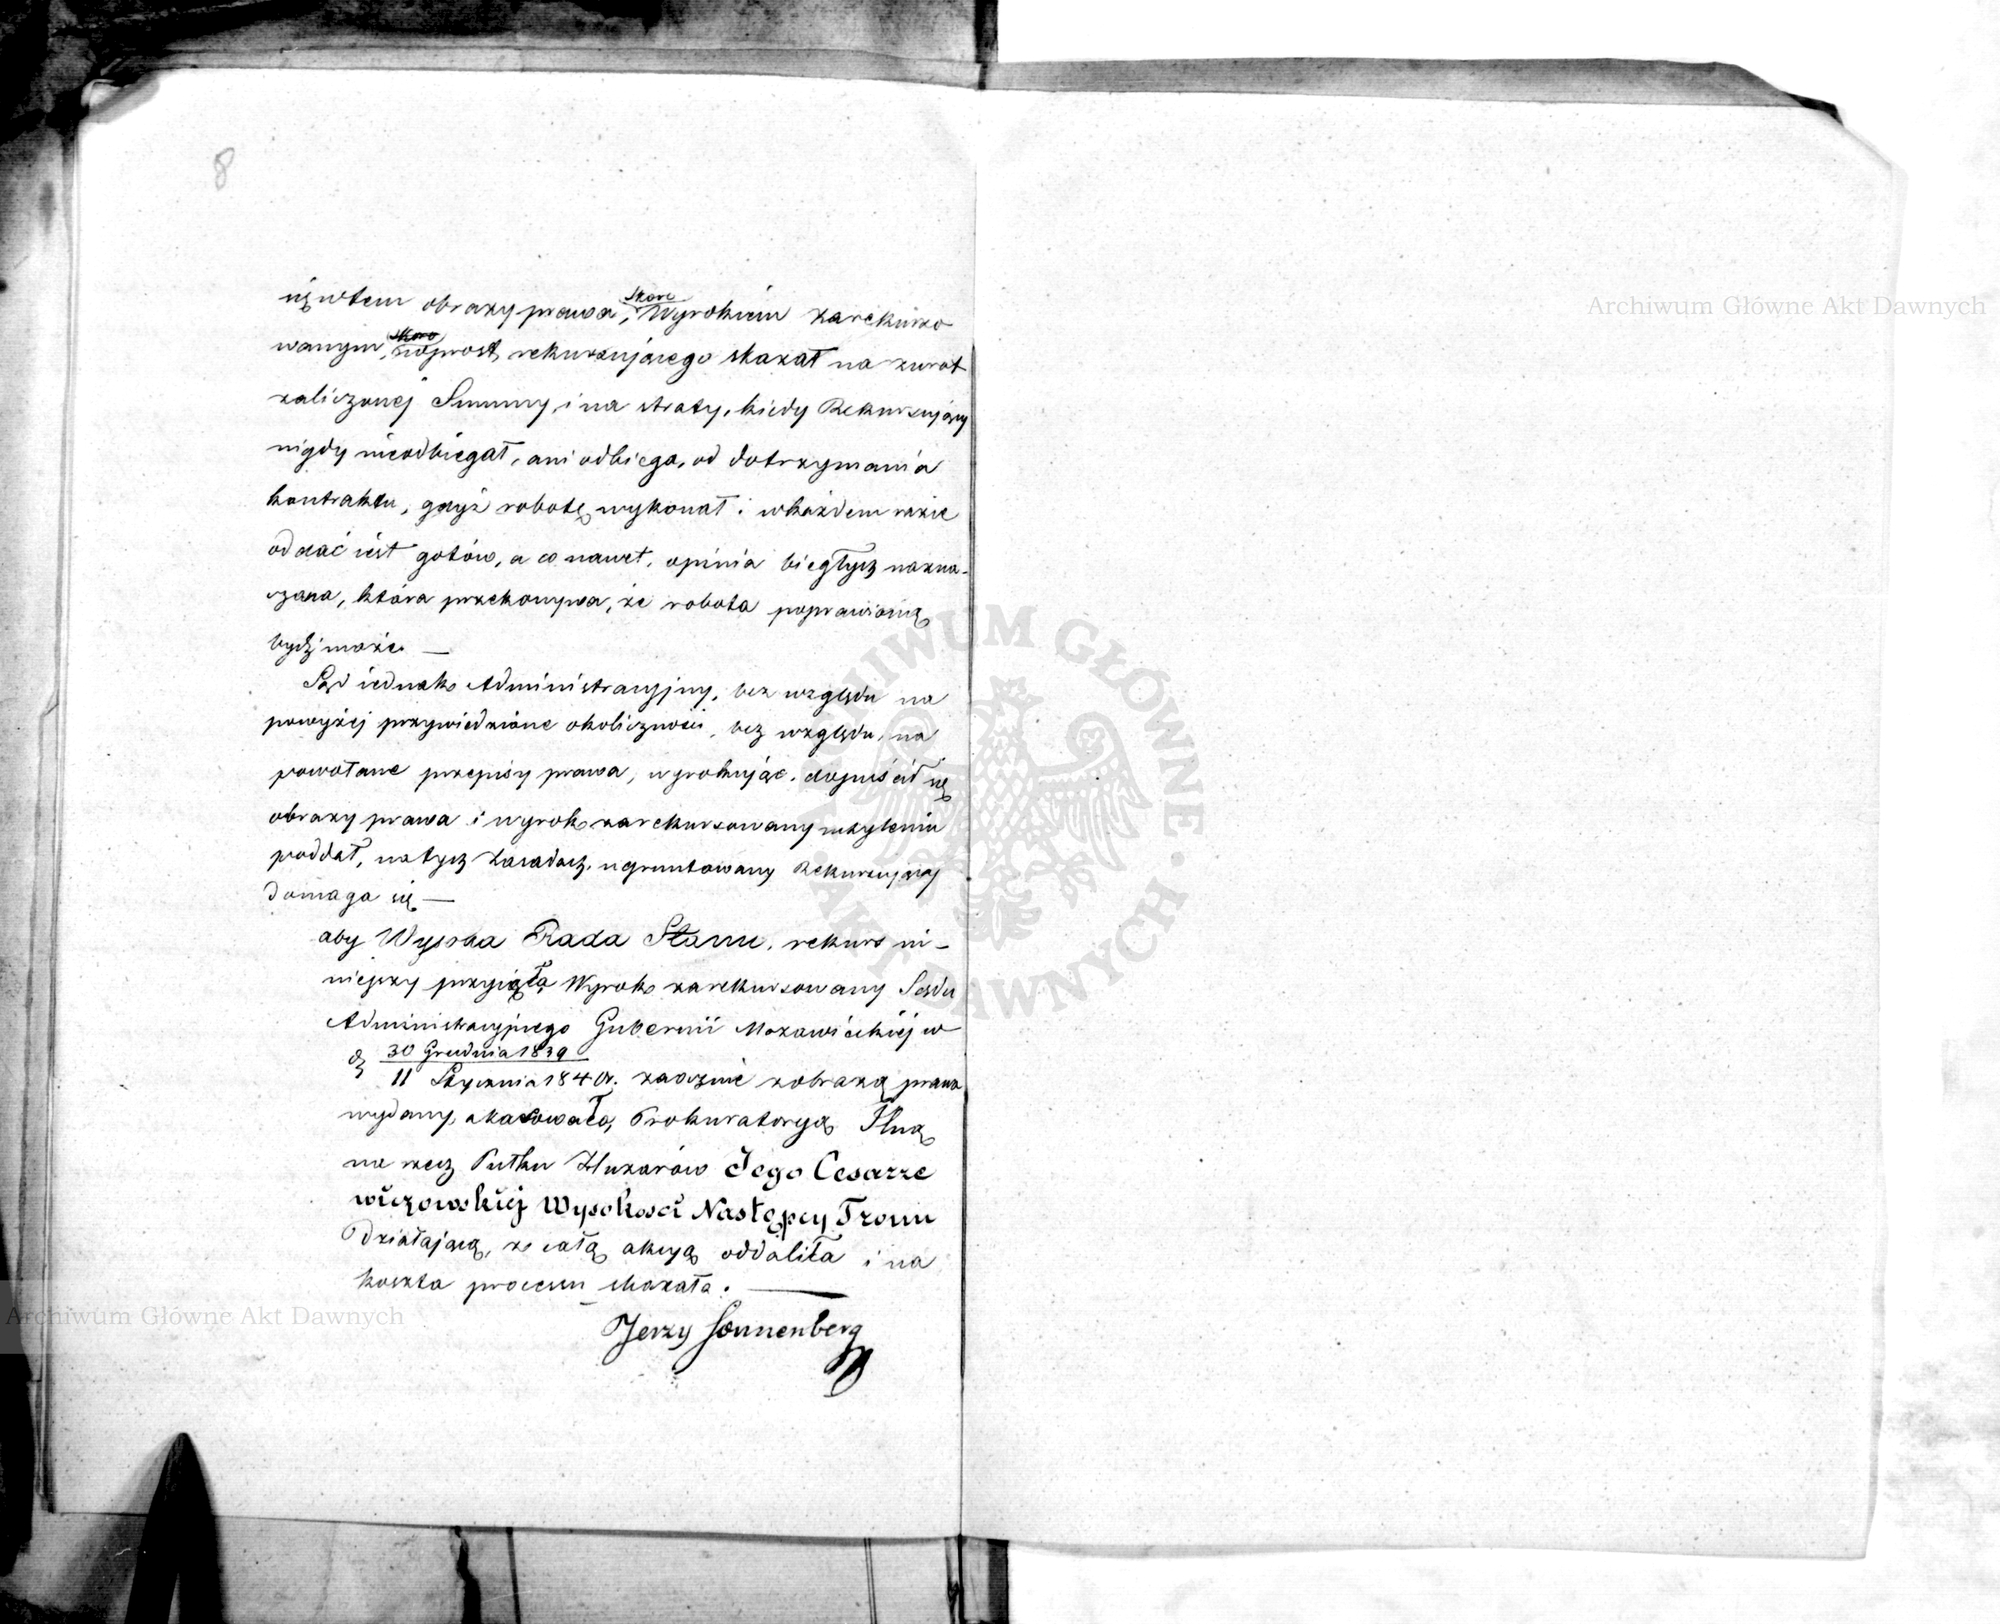 8
się wtem obrazy prawa, skoro Wyrokiem zarekurso
wanym, skoro wprost rekursującego skazał na zwrot
zaliczonej Summy, i na straty, kiedy Rekursujący
nigdy nieodbiegał, ani odbiega, od dotrzymania
kontraktu, gdyż robotę wykonał i wkażdem razie
oddać iest gotów, a co nawet, opinia biegłych nazna-
czona, która przekonywa, że robota poprawioną
bydź może. —
Sąd iednak Administracyjny, bez względu na
powyżej przywiedzione okoliczności, bez względu, na
powołane przepisy prawa, wyrokując, dopuścił się
obrazy prawa i wyrok zarekursowany uchyleniu
poddał, na tych zasadach, ugruntowany Rekursujący
domaga się —
aby Wysoka Rada Stanu, rekurs ni-
niejszy przyięła Wyrok zarekursowany Sądu
Administracyjnego Gubernii Mazowieckiej w
d. 30 Grudnia 1839
11 Stycznia 1840 r. zaocznie z obrazą prawa
wydany, skasowała, Prokuratoryą
na rzecz Pułku Huzarów Jego Cesarze
wiczowskiej Wysokości Następcy Tronu
Działającą, z całą akcyą oddaliła i na
koszta processu skazała. —
Jerzy Sonnenberg
Archiwum Główne Akt Dawnych
Archiwum Główne Akt Dawnych
ARCHIWUM GŁÓWNE AKT DAWNYCH